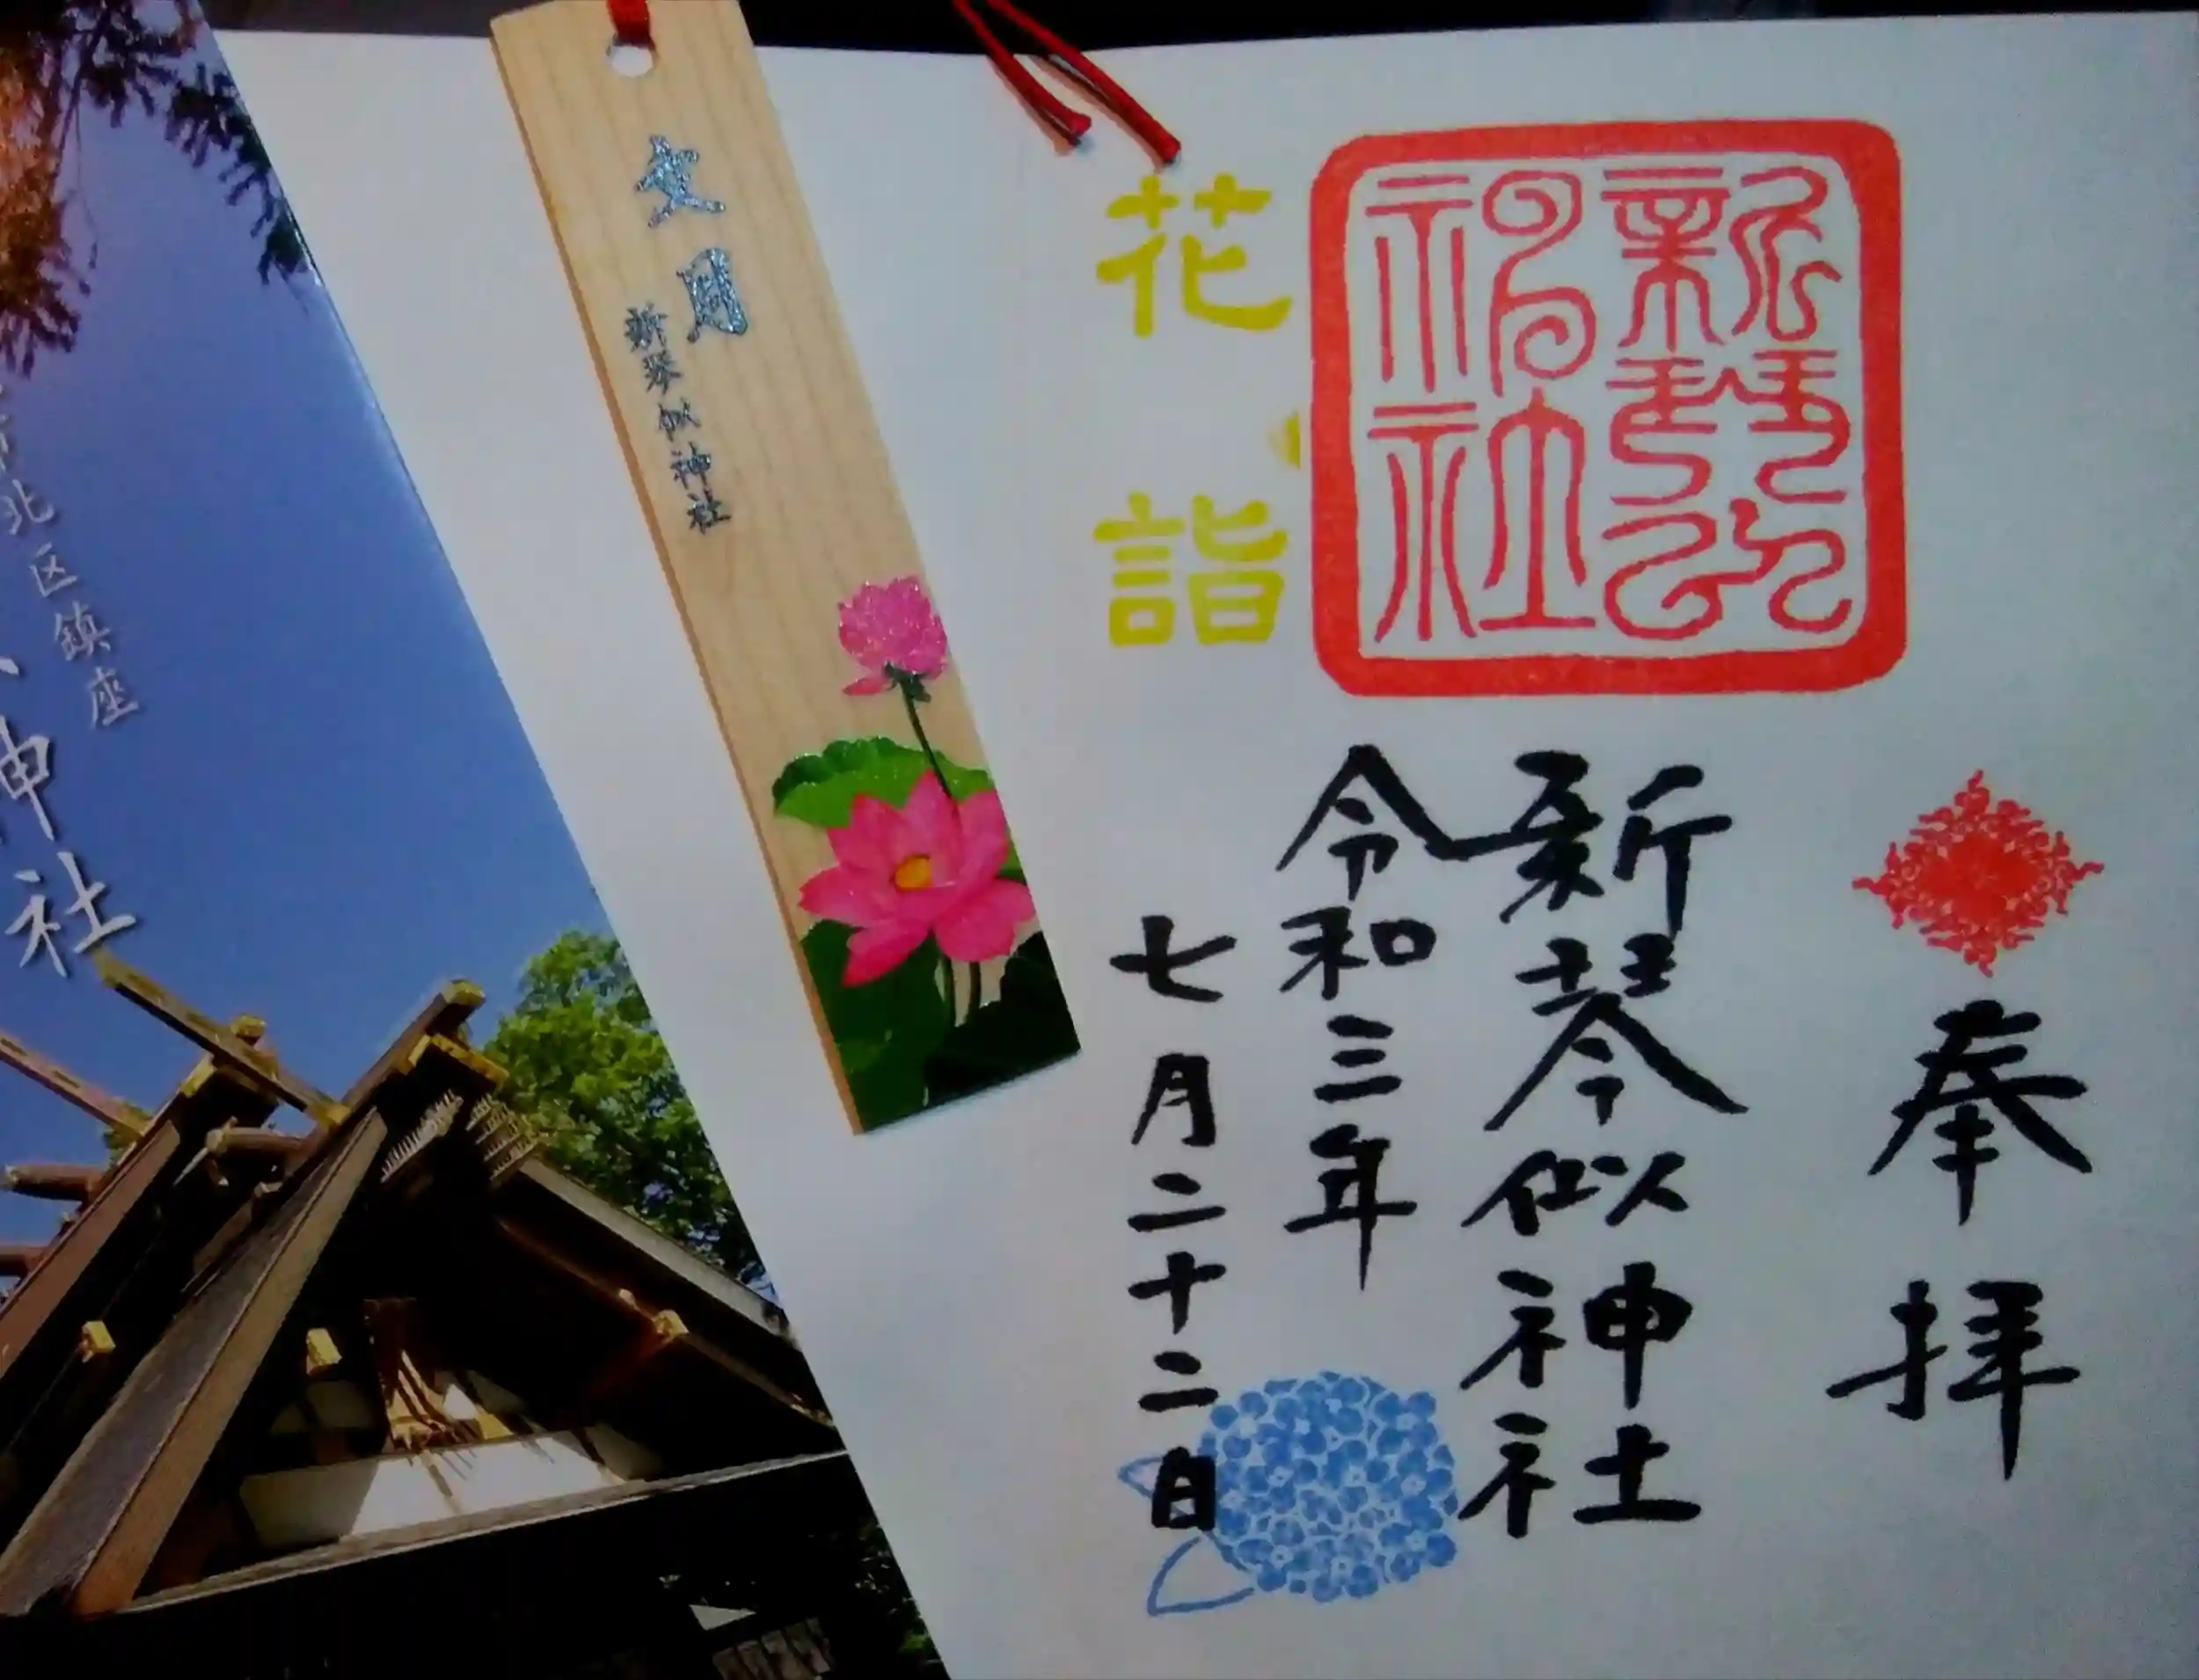 奉拝
新琴似神社
令和三年
七月二十二日
新琴似神社
花詣
文月
新琴似神社
北区鎮座
神社